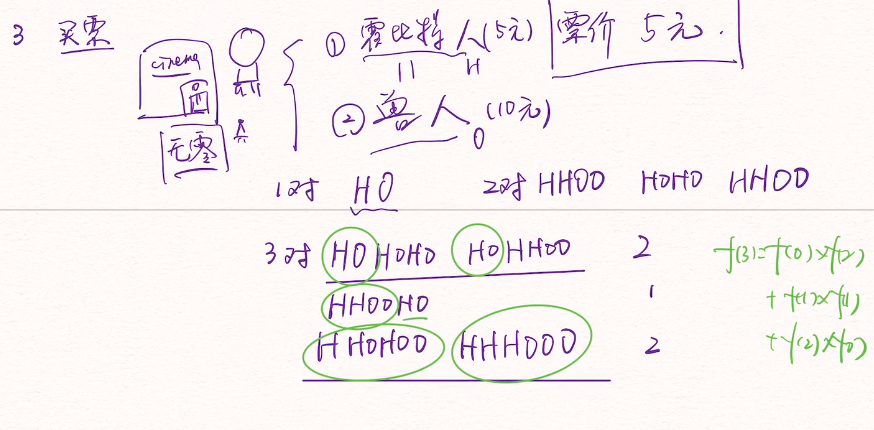 3 买票
cinema
售
无零
① 霍比特人(5元)
H
② 兽人(10元)
O
票价 5元.
1对 HO 2对 HHOO HOHO HHOO
3对 HOHOHO HOHHOO 2
HHOOHO 1
HHOHOO HHHOOO 2
f(3)=f(0)×f(2)
+f(1)×f(1)
+f(2)×f(0)